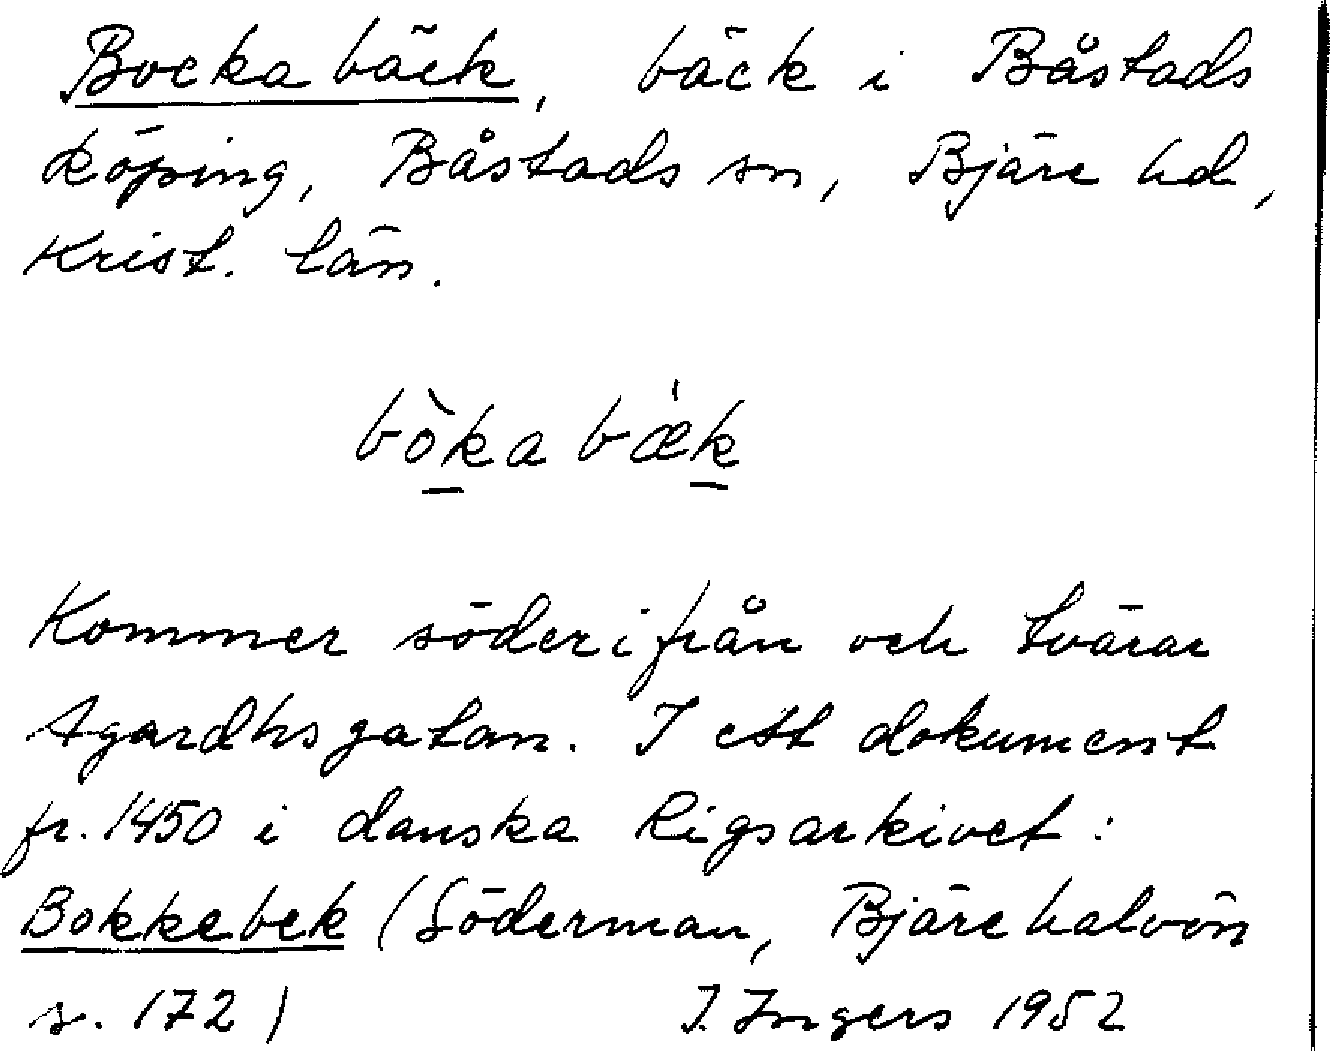 Bockabäck, bäck i Båstads
köping, Båstads sn, Bjäre hd,
Krist. län.
bòk̲abæ̍k̲
Kommer söderifrån och tvärar
Agardhsgatan. I ett dokument
fr. 1450 i danska Rigsarkivet:
Bokkebek (Söderman, Bjärehalvön
s. 172)
I. Ingers 1952